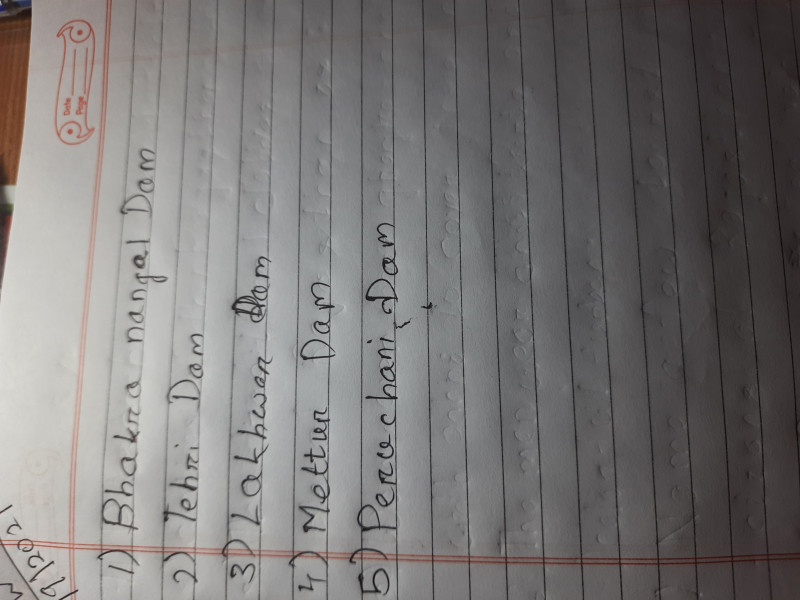 Date
Page
1) Bhakra nangal Dam
2) Tehri Dam
3) Lakhwar Dam
4) Mettur Dam
5) Peruchani Dam